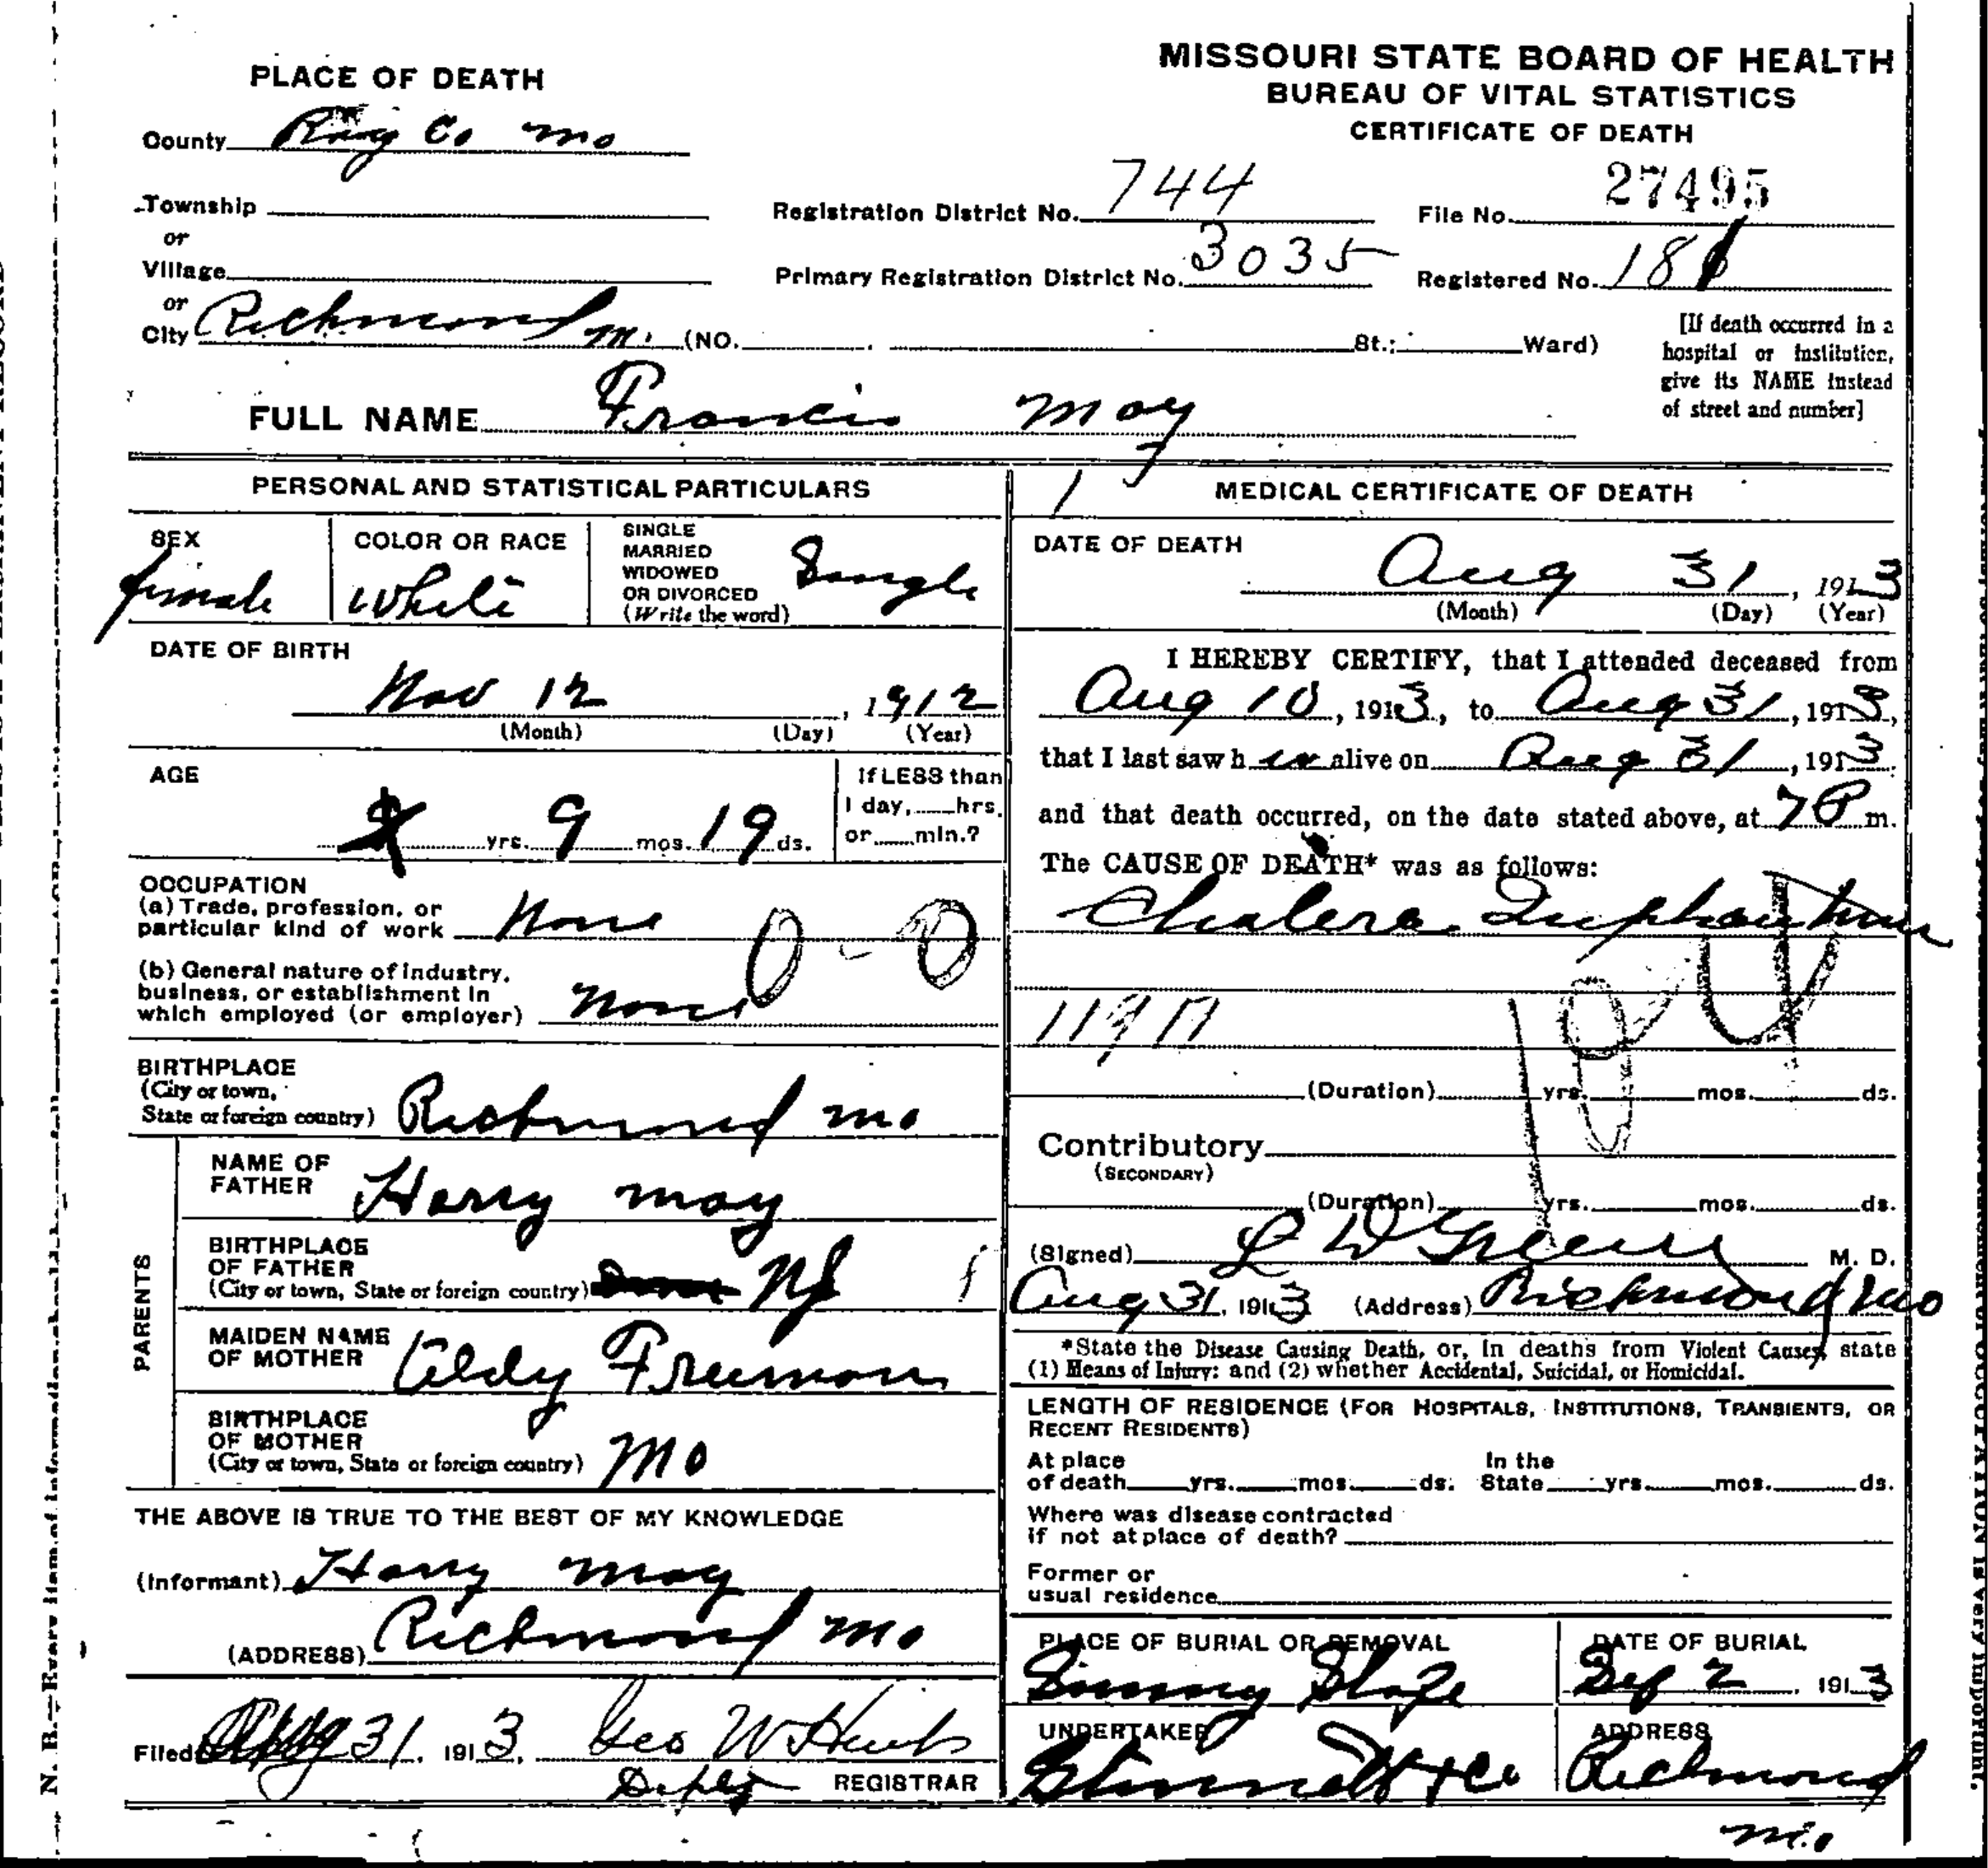 MISSOURI STATE BOARD OF HEALTH
BUREAU OF VITAL STATISTICS
CERTIFICATE OF DEATH
PLACE OF DEATH
County Ray Co Mo
Township
or
Village
or
City Richmond M. (NO. St.; Ward)
Registration District No. 744
File No. 27495
Primary Registration District No. 3035
Registered No. 181
[If death occurred in a
hospital or institution,
give its NAME instead
of street and number]
FULL NAME Francis May
PERSONAL AND STATISTICAL PARTICULARS
SEX
female
COLOR OR RACE
White
SINGLE
MARRIED
WIDOWED
OR DIVORCED
(Write the word)
Single
DATE OF BIRTH
Nov 12, 1912
(Month) (Day) (Year)
AGE
yrs. 9 mos. 19 ds.
If LESS than
1 day, hrs.
or min.?
OCCUPATION
(a) Trade, profession, or
particular kind of work None
0 - 0
(b) General nature of industry,
business, or establishment in
which employed (or employer) None
BIRTHPLACE
(City or town,
State or foreign country) Richmond Mo
PARENTS
NAME OF
FATHER Harry May
BIRTHPLACE
OF FATHER
(City or town, State or foreign country)
MAIDEN NAME
OF MOTHER Freeman
BIRTHPLACE
OF MOTHER
(City or town, State or foreign country) Mo
THE ABOVE IS TRUE TO THE BEST OF MY KNOWLEDGE
(Informant) Harry May
(ADDRESS) Richmond Mo
Filed 31, 1913, Geo W
Depty REGISTRAR
MEDICAL CERTIFICATE OF DEATH
DATE OF DEATH
Aug 31, 1913
(Month) (Day) (Year)
I HEREBY CERTIFY, that I attended deceased from
Aug 10, 1913, to Aug 31, 1913,
that I last saw h er alive on Aug 31, 1913.
and that death occurred, on the date stated above, at 7 P m.
The CAUSE OF DEATH* was as follows:
Cholera
(Duration) yrs. mos. ds.
Contributory
(SECONDARY)
(Duration) yrs. mos. ds.
(Signed) L D Greene M. D.
Aug 31, 1913 (Address) Richmond Mo
*State the Disease Causing Death, or, in deaths from Violent Causes, state
(1) Means of Injury; and (2) whether Accidental, Suicidal, or Homicidal.
LENGTH OF RESIDENCE (FOR HOSPITALS, INSTITUTIONS, TRANSIENTS, OR
RECENT RESIDENTS)
At place
of death yrs. mos. ds.
In the
State yrs. mos. ds.
Where was disease contracted
if not at place of death?
Former or
usual residence
PLACE OF BURIAL OR REMOVAL
Sunny Slope
DATE OF BURIAL
Sep 2, 1913
UNDERTAKER
& Co
ADDRESS
Richmond
Mo